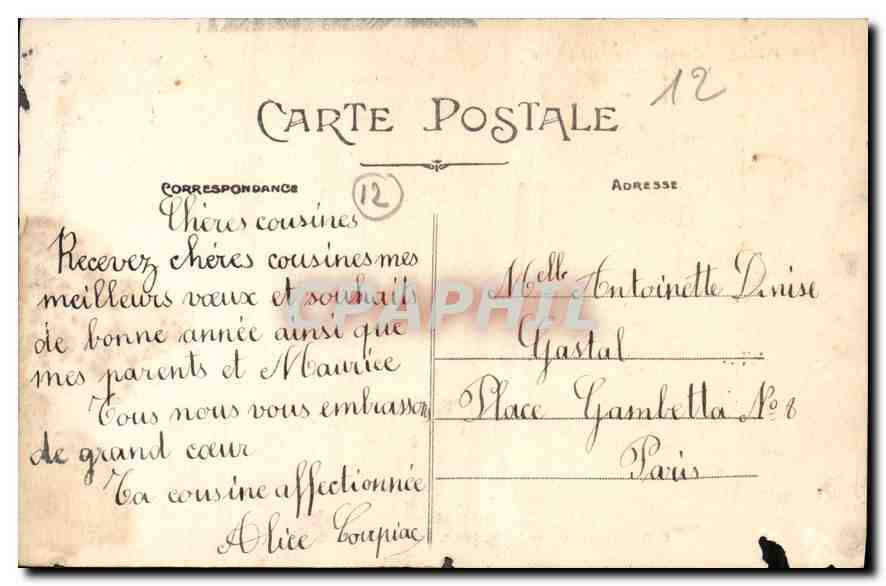 12
CARTE POSTALE
CORRESPONDANCE
12
ADRESSE
Chères cousines
Recevez chéres cousines mes
meilleurs vœux et souhaits
de bonne année ainsi que
mes parents et Maurice
Tous nous vous embrassons
de grand cœur
Ta cousine affectionnée
Alice Courpiac
Melle Antoinette Denise
Gastal
Place Gambetta No 8
Paris
CPAPHIL